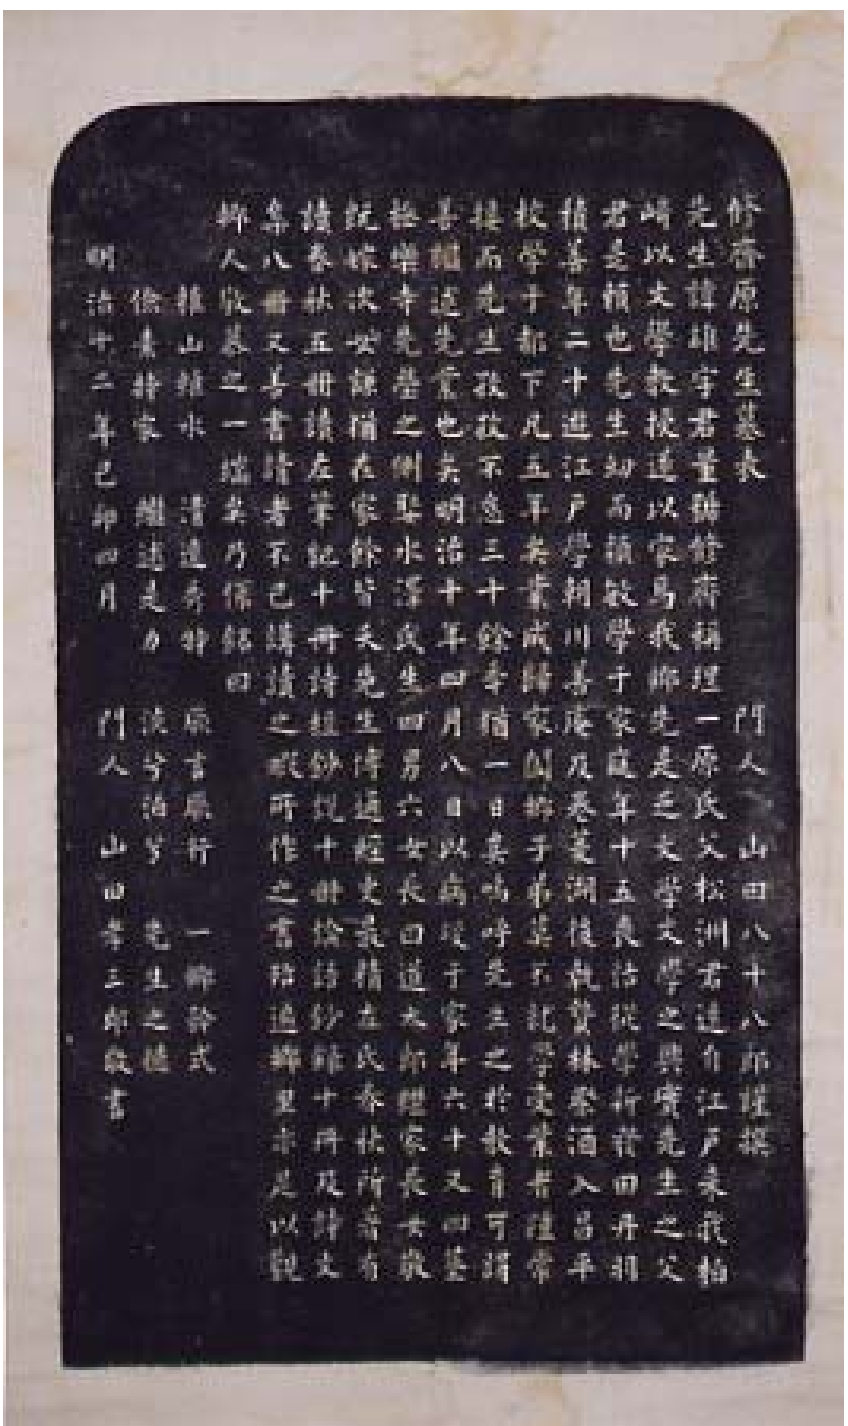 修齋原先生墓表 門人 山田八十八郎謹撰
先生諱雄字君量號修齋稱理一原氏父松洲君遠自江戶來我柏
崎以文學教授遂以家焉我鄉先是乏文學文學之興實先生之父
君是賴也先生幼而穎敏學于家庭年十五喪怙從學折於田丹
積善年二十遊江戶學朝川善庵及卷菱湖後執贄林祭酒入昌平
校學于都下凡五年矣業成歸家閭鄉子弟莫不就學受業者陸常
接而先生孜孜不怠三十餘年猶一日矣嗚呼先生之於教育可謂
善繼述先業也矣明治十年四月八日以病歿于家年六十又四墓
極樂寺先塋之側娶水澤氏生四男六女長曰道太郎繼家長女敬
既嫁次女謙猶在家餘皆夭先生博通經史最精左氏春秋所著有
讀春秋五冊讀左筆記十冊詩經鈔說十冊論語鈔錄十冊及詩文
集八冊又善書請者不已講讀之暇所作之書殆遍鄉里亦足以觀
鄉人敬慕之一端矣乃係銘曰
山 水 清遠秀特 言 行 一鄉矜式
儉素持家 繼述是力 淡兮泊兮 先生之德
明治十二年己卯四月 門人 山田孝三郎敬書